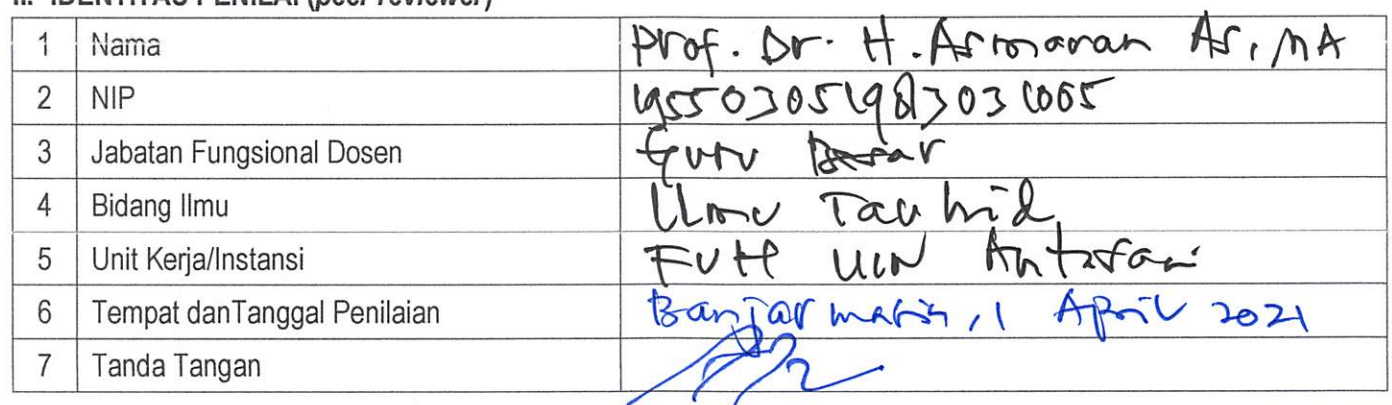 II. IDENTITAS PENILAI (peer reviewer)
1 Nama Prof. Dr. H. Asmaran As, MA
2 NIP 195503051983031005
3 Jabatan Fungsional Dosen Guru Besar
4 Bidang Ilmu Ilmu Tauhid
5 Unit Kerja/Instansi FUH UIN Antasari
6 Tempat danTanggal Penilaian Banjarmasin, 1 April 2021
7 Tanda Tangan